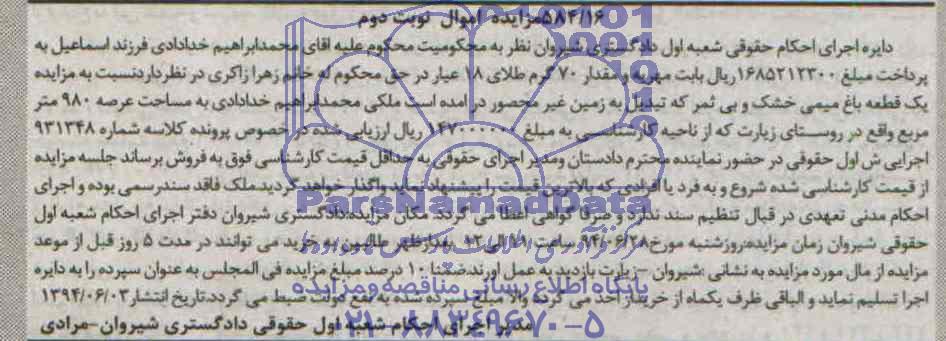 ۵۸۴/۱۶مزایده اموال نوبت دوم
دایره اجرای احکام حقوقی شعبه اول دادگستری شیروان نظر به محکومیت محکوم علیه اقای محمدابراهیم خدادادی فرزند اسماعیل به
پرداخت مبلغ ۱۶۸۵۲۱۲۳۰۰ریال بابت مهریه و مقدار ۷۰ گرم طلای ۱۸ عیار در حق محکوم له خانم زهرا زاکری در نظرداردنسبت به مزایده
یک قطعه باغ میمی خشک و بی ثمر که تبدیل به زمین غیر محصور در امده است ملکی محمدابراهیم خدادادی به مساحت عرصه ۹۸۰ متر
مربع واقع در روستای زیارت که از ناحیه کارشناسی به مبلغ ۱۴۷۰۰۰۰۰۰ ریال ارزیابی شده در خصوص پرونده کلاسه شماره ۹۳۱۳۴۸
اجرایی ش اول حقوقی در حضور نماینده محترم دادستان ومدیر اجرای حقوقی به حداقل قیمت کارشناسی فوق به فروش برساند جلسه مزایده
از قیمت کارشناسی شده شروع و به فرد یا افرادی که بالاترین قیمت را پیشنهاد نماید واگذار خواهد گردید.ملک فاقد سندرسمی بوده و اجرای
احکام مدنی تعهدی در قبال تنظیم سند ندارد و صرفا گواهی اعطا می گردد. مکان مزایده:دادگستری شیروان دفتر اجرای احکام شعبه اول
حقوقی شیروان زمان مزایده:روزشنبه مورخ ۹۴/۰۶/۲۸ ساعت ۱۱ الی ۱۲ بعدازظهر طالبین به خرید می توانند در مدت ۵ روز قبل از موعد
مزایده از مال مورد مزایده به نشانی :شیروان -زیارت بازدید به عمل اورند.ضمنا ۱۰ درصد مبلغ مزایده فی المجلس به عنوان سپرده را به دایره
اجرا تسلیم نماید و الباقی ظرف یکماه از خریدار اخذ می گردد والا مبلغ سپرده شده به نفع دولت ضبط می گردد.تاریخ انتشار۱۳۹۴/۰۶/۰۳
مدیر اجرای احکام شعبه اول حقوقی دادگستری شیروان-مرادی
ParsNamadData
پایگاه اطلاع رسانی مناقصه و مزایده
۰۲۱-۸۸۳۴۹۶۷۰-۵